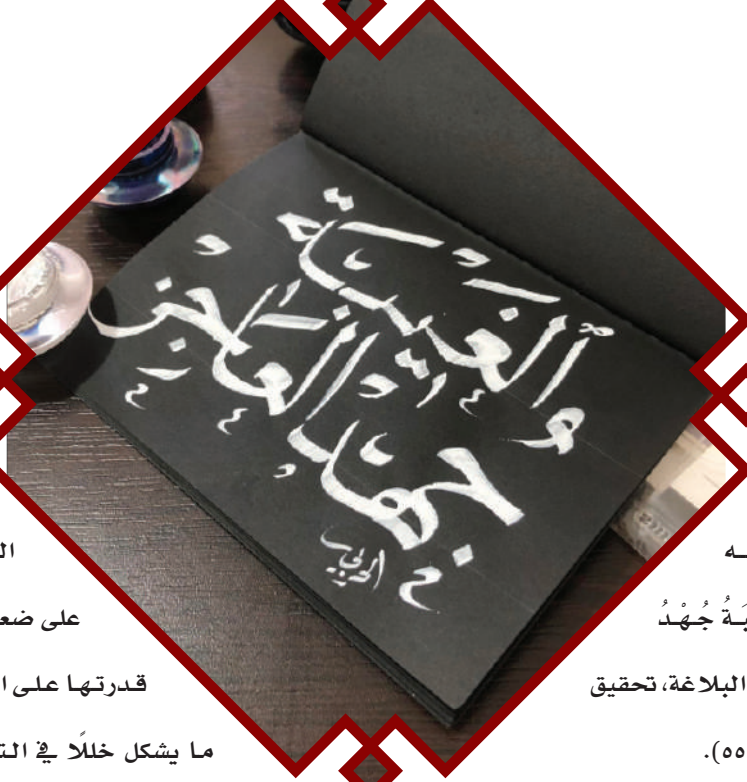 وٱلغيبة
جهد العاجز
الحربي
ـه
ـبَةُ جُهْدُ
البلاغة، تحقيق
٥٥).
على
قدرتها على
ما يشكل خللًا في